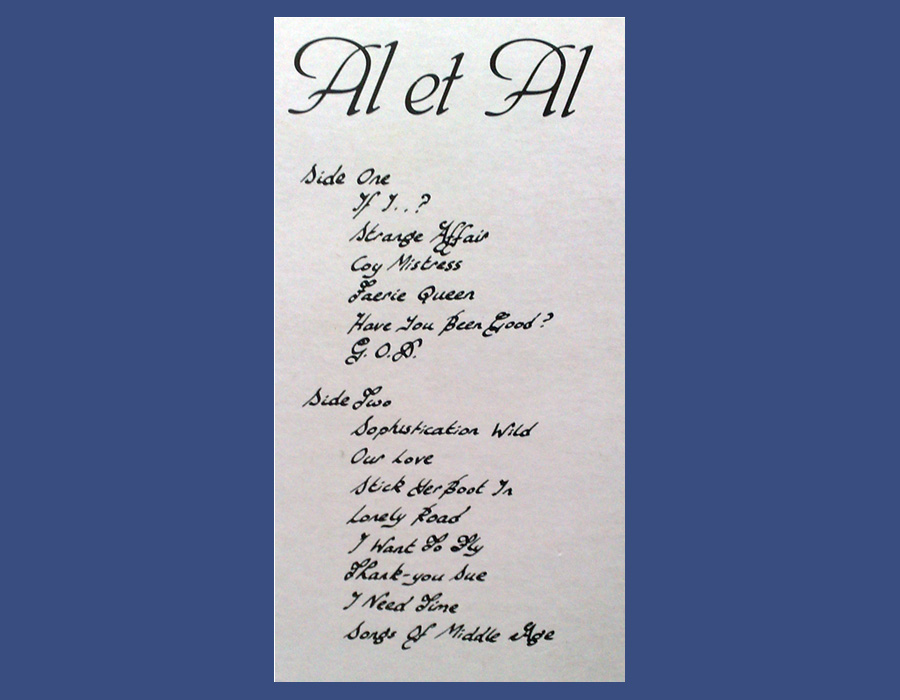 Al et Al
Side One
If I..?
Strange Affair
Coy Mistress
Faerie Queen
Have You Been Good?
G.O.D.
Side Two
Sophistication Wild
Our Love
Stick Her Boot In
Lonely Road
I Want To Fly
Thank-you Sue
I Need Time
Songs Of Middle Age